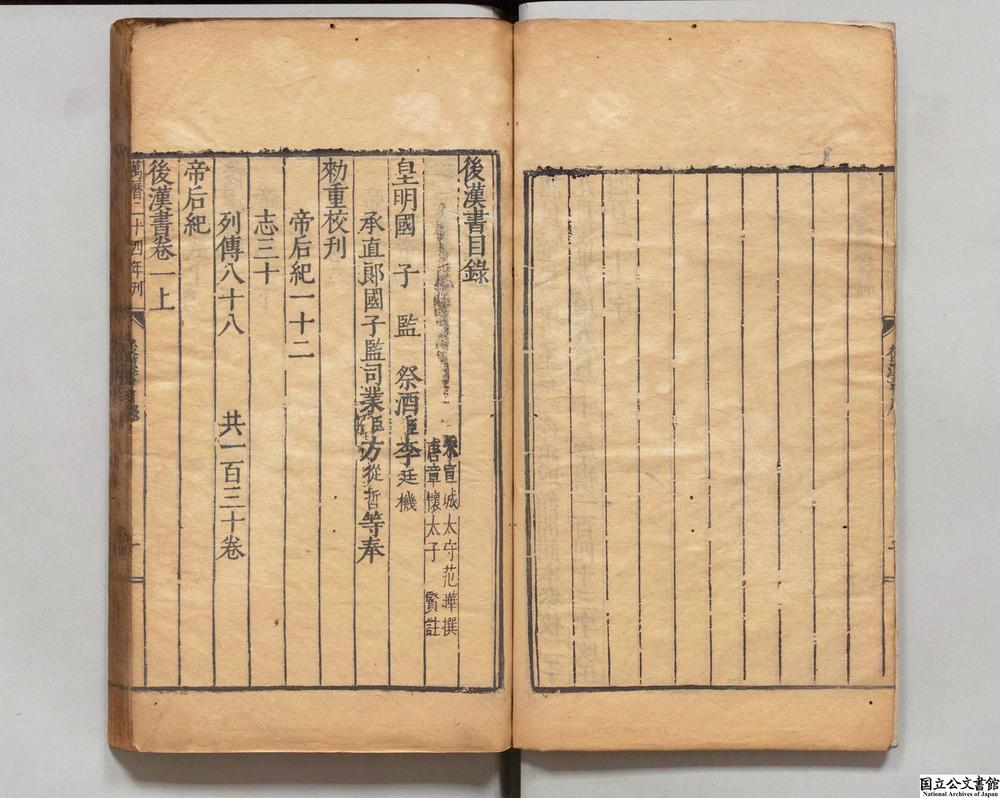 後漢書目錄
宣城太守范曄撰
唐章懷太子賢註
皇明國子監祭酒臣李廷機
承直郎國子監司業臣方從哲等奉
勑重校刊
帝后紀一十二
志三十
列傳八十八 共一百三十卷
帝后紀
後漢書卷一上
萬曆二十四年刊
国立公文書館
National Archives of Japan